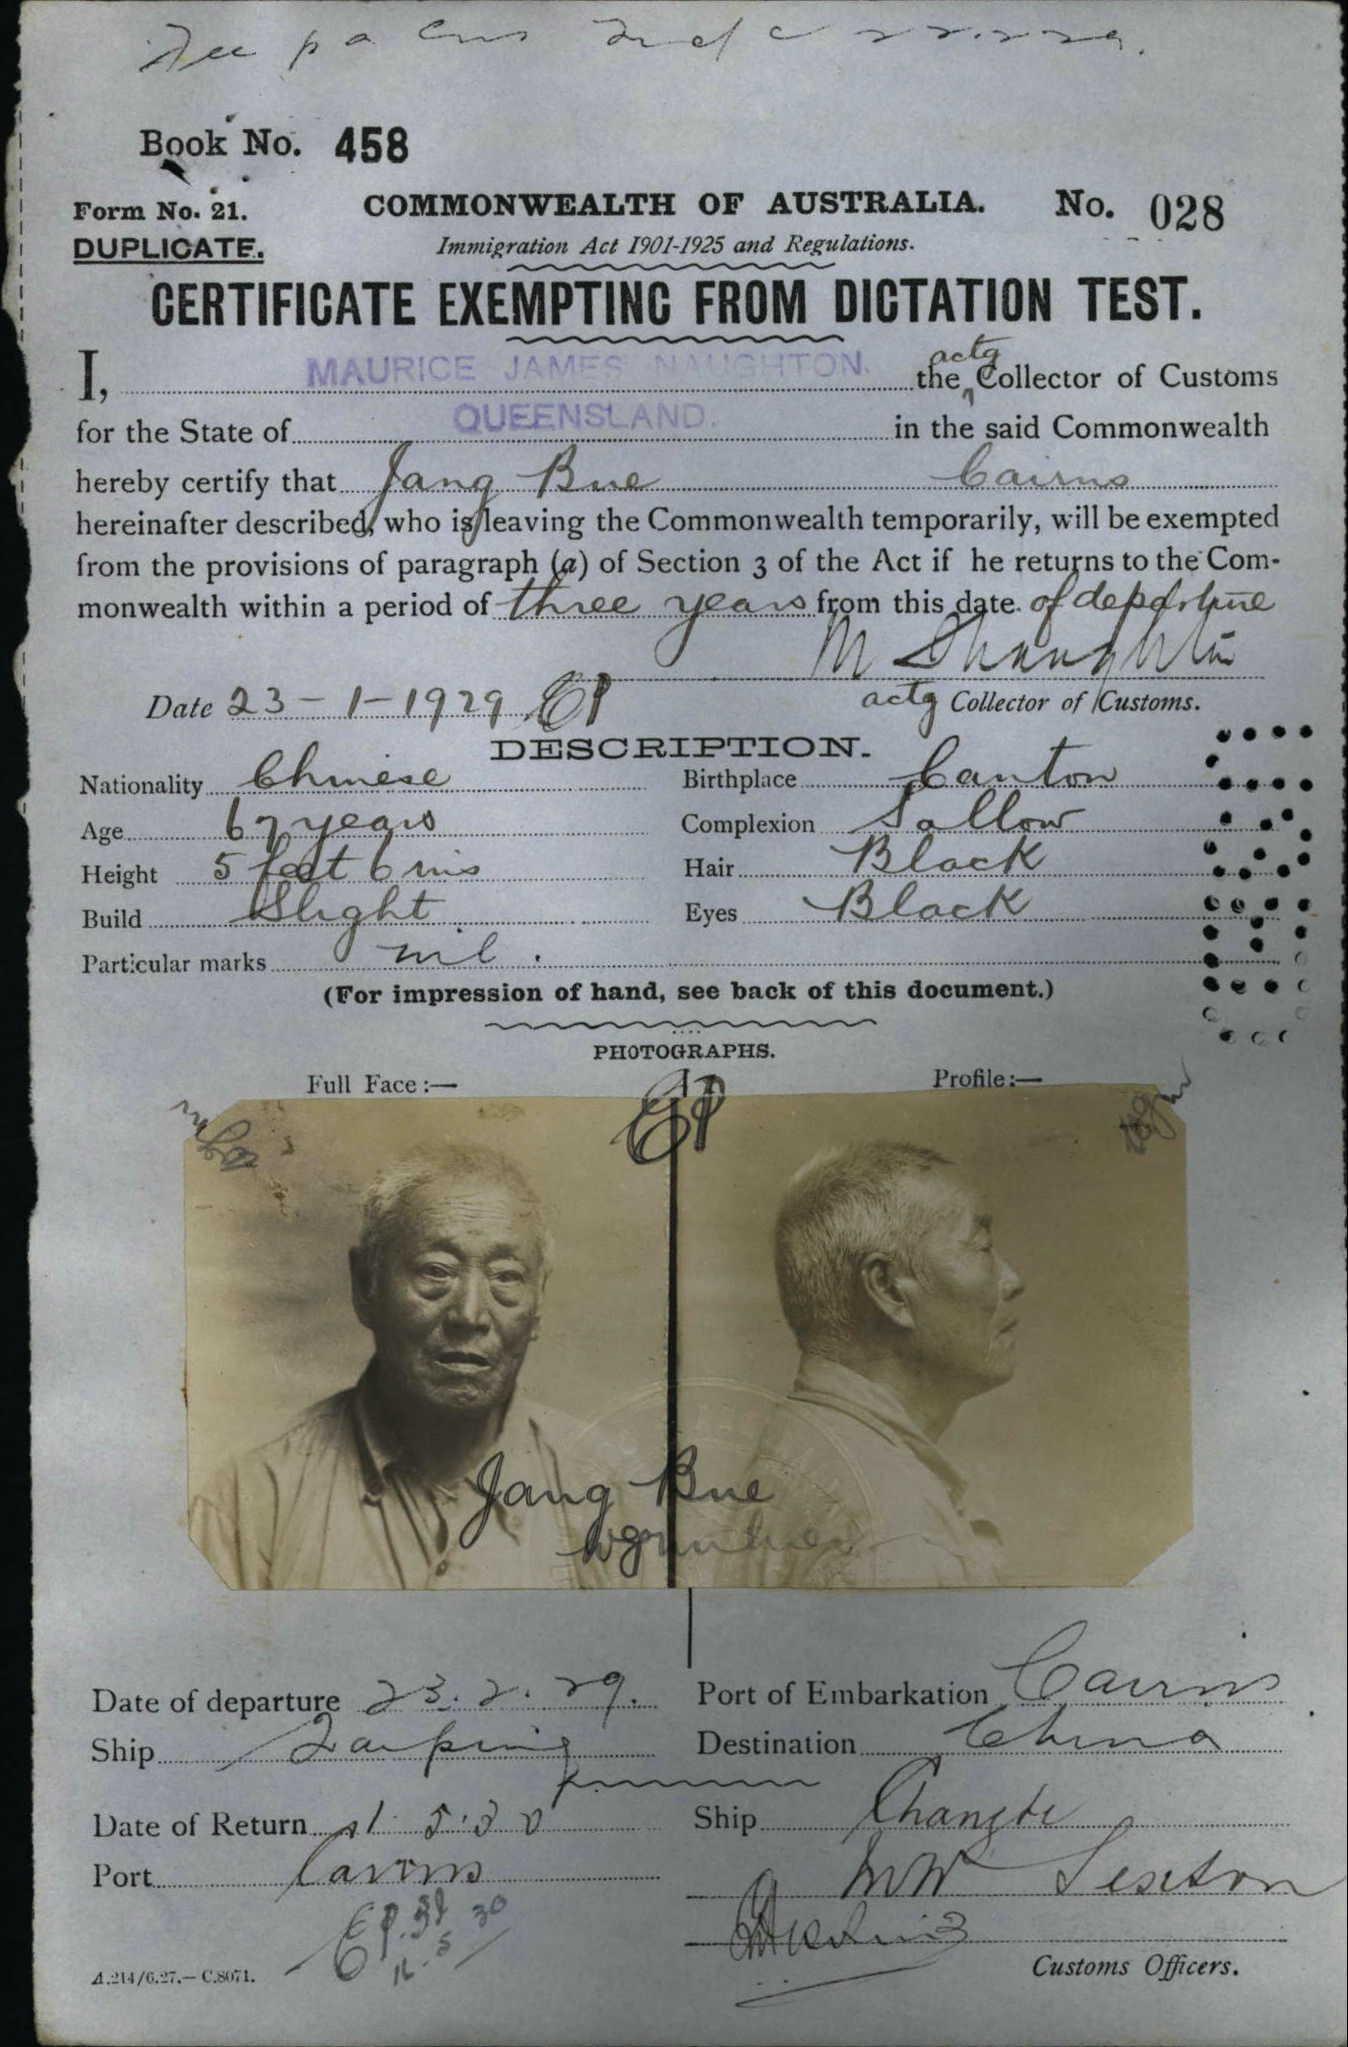 Book No. 458
Form No. 21. COMMONWEALTH OF AUSTRALIA. No. 028
DUPLICATE. Immigration Act 1901-1925 and Regulations.
CERTIFICATE EXEMPTING FROM DICTATION TEST.
I, MAURICE JAMES NAUGHTON. the actg Collector of Customs
for the State of QUEENSLAND. in the said Commonwealth
hereby certify that Jang Bue Cairns
hereinafter described, who is leaving the Commonwealth temporarily, will be exempted
from the provisions of paragraph (a) of Section 3 of the Act if he returns to the Com-
monwealth within a period of three years from this date of departure
Date 23-1-1929
actg Collector of Customs.
DESCRIPTION.
Nationality Chinese Birthplace Canton
Age 67 years Complexion Sallow
Height 5 feet 6 ins Hair Black
Build Slight Eyes Black
Particular marks nil.
(For impression of hand, see back of this document.)
PHOTOGRAPHS.
Full Face:— Profile:—
Jang Bue
Date of departure 23.2.29. Port of Embarkation Cairns
Ship Taiping Destination China
Date of Return Ship Changte
Port Cairns
A.214/6.27.—C.8071. Customs Officers.